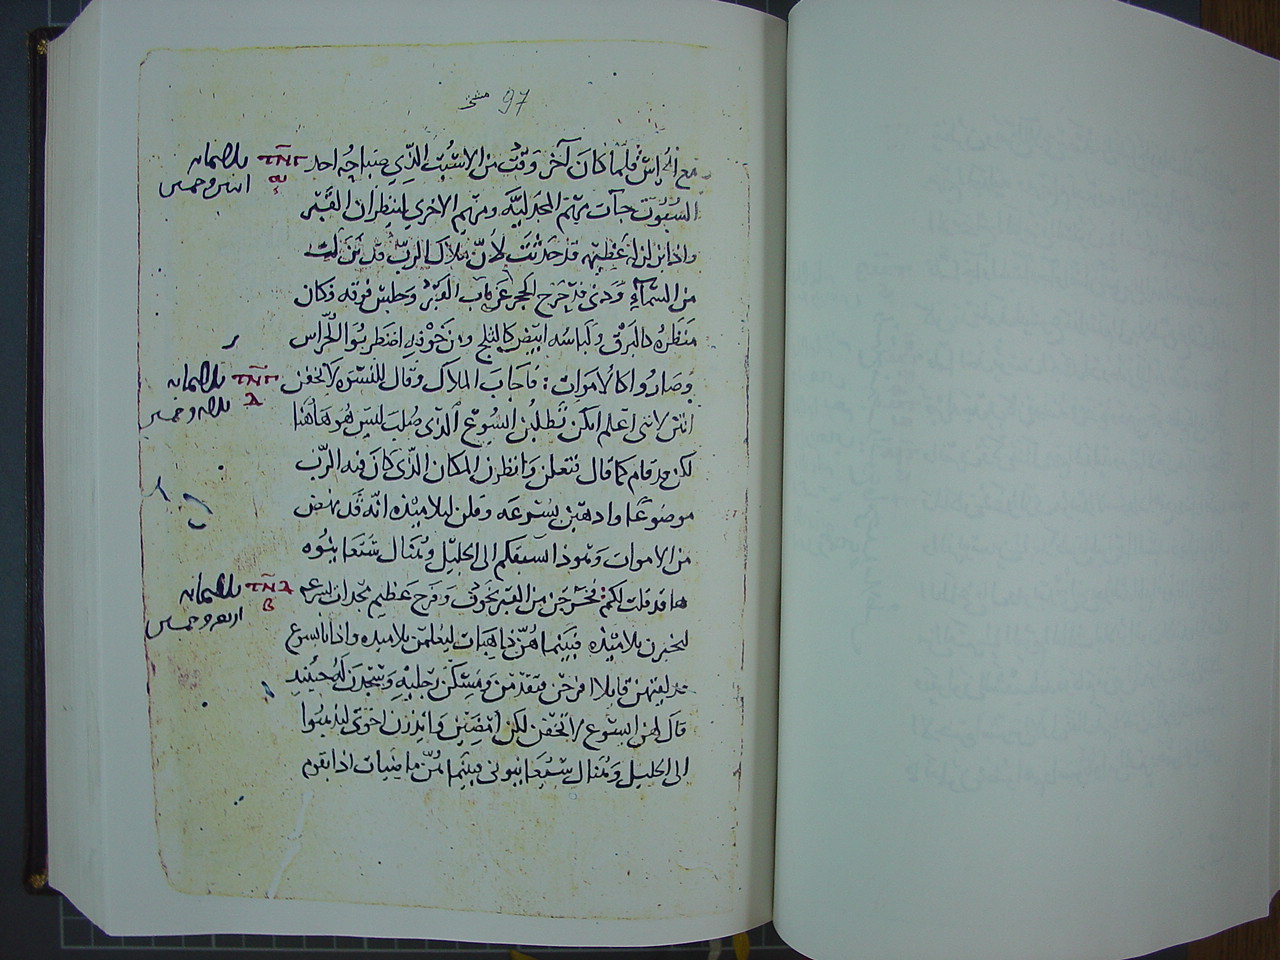 97 متى
مع الحراس فلما كان آخر وقت من الاسبت الذي صباحه احد
السبوت جآت مريم المجدليه ومريم الاخري لينظران القبر
واذا بزلزله عظيمه قد حدثت لأن ملاك الرب قد تنزلت
من السمآء ودنى فدحرج الحجر عن باب القبر وجلس فوقه فكان
منظره كالبرق ولباسه ابيض كالثلج ومن خوفه اضطربوا الحراس
وصاروا كالاموات فاجاب الملاك وقال للنسوه لا تخفن
انتن لاننى اعلم انكن تطلبن ايسوع الذي صلب ليس هو هاهنا
لكن قد قام كما قال فتعلن وانظرن المكان الذي كان فيه الرب
موضوعا واذهبن بسرعه وقلن لتلاميذه انه قد نهض
من الاموات وهوذا اسبقكم الى الجليل وهنال شنعا ينوه
ها قد قلت لكم فخرجن من القبر بخوف وفرح عظيم مجدات بسرعه
لتخبرن تلاميذه فبينما هن ذاهبات ليعلمن تلاميذه واذا بايسوع
قد لقيهن قايلا افرحن فتقدمن ومسكن رجليه وسجدن له حينيذ
قال لهن ايسوع لا تخفن لكن امضين وانذرن اخوتى ليذهبوا
الى الجليل وهنال شيعاينونى فبينما هن ماضيات اذا بقوم
ثلثمايه
اثنين وخمسين
ثلثمايه
ثلثه وخمسين
ثلثمايه
اربعه وخمسين